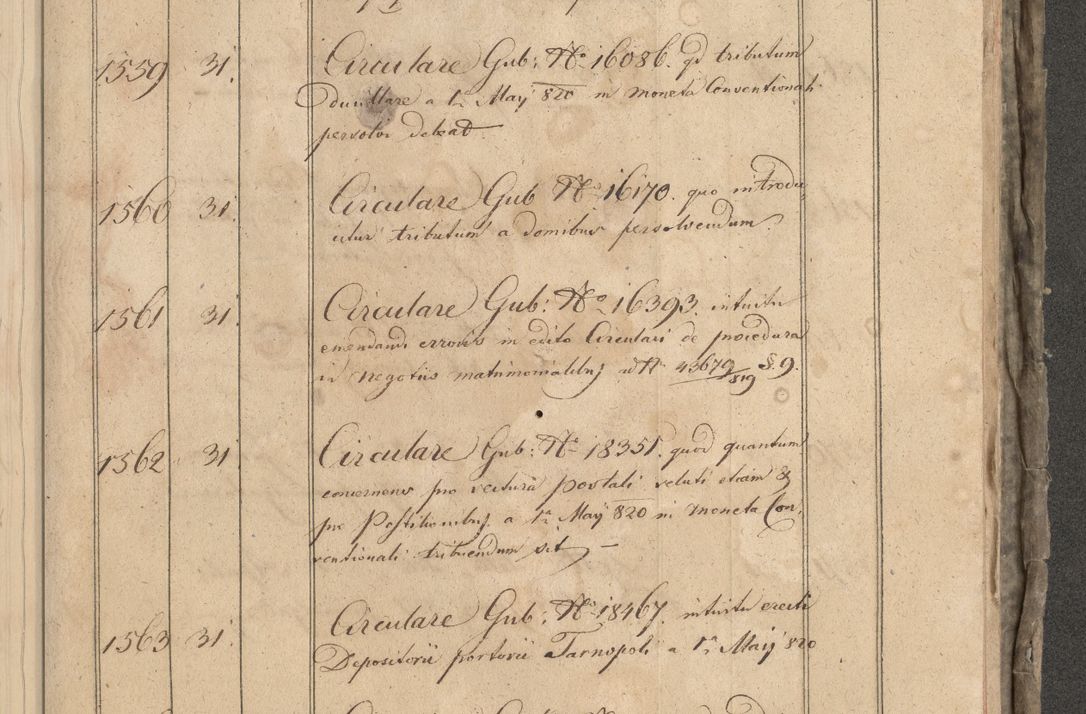 1559 31. Circulare Gub: No 16086. qd tributum
Ducillare a 1a May 820 in moneta Conventionali
persolvi debeat.
1560 31. Circulare Gub No 16170. quo introdu
citur tributum a domibus persolvendum.
1561 31. Circulare Gub: No 16393. intuitu
emendandi erroris in edito Circulari de procedura
in negotiis matrimonialibus 43679/819 §. 9.
1562 31. Circulare Gub: No 18351. quod quantum
concernens pro vectura postali veluti etiam &
pro Postilionibus a 1a May 820 in moneta Con,
ventionali tribuendum sit, —
1563 31. Circulare Gub: No 18467. intuitu erecti
Depositorii portorii Tarnopoli a 1a Maij 820